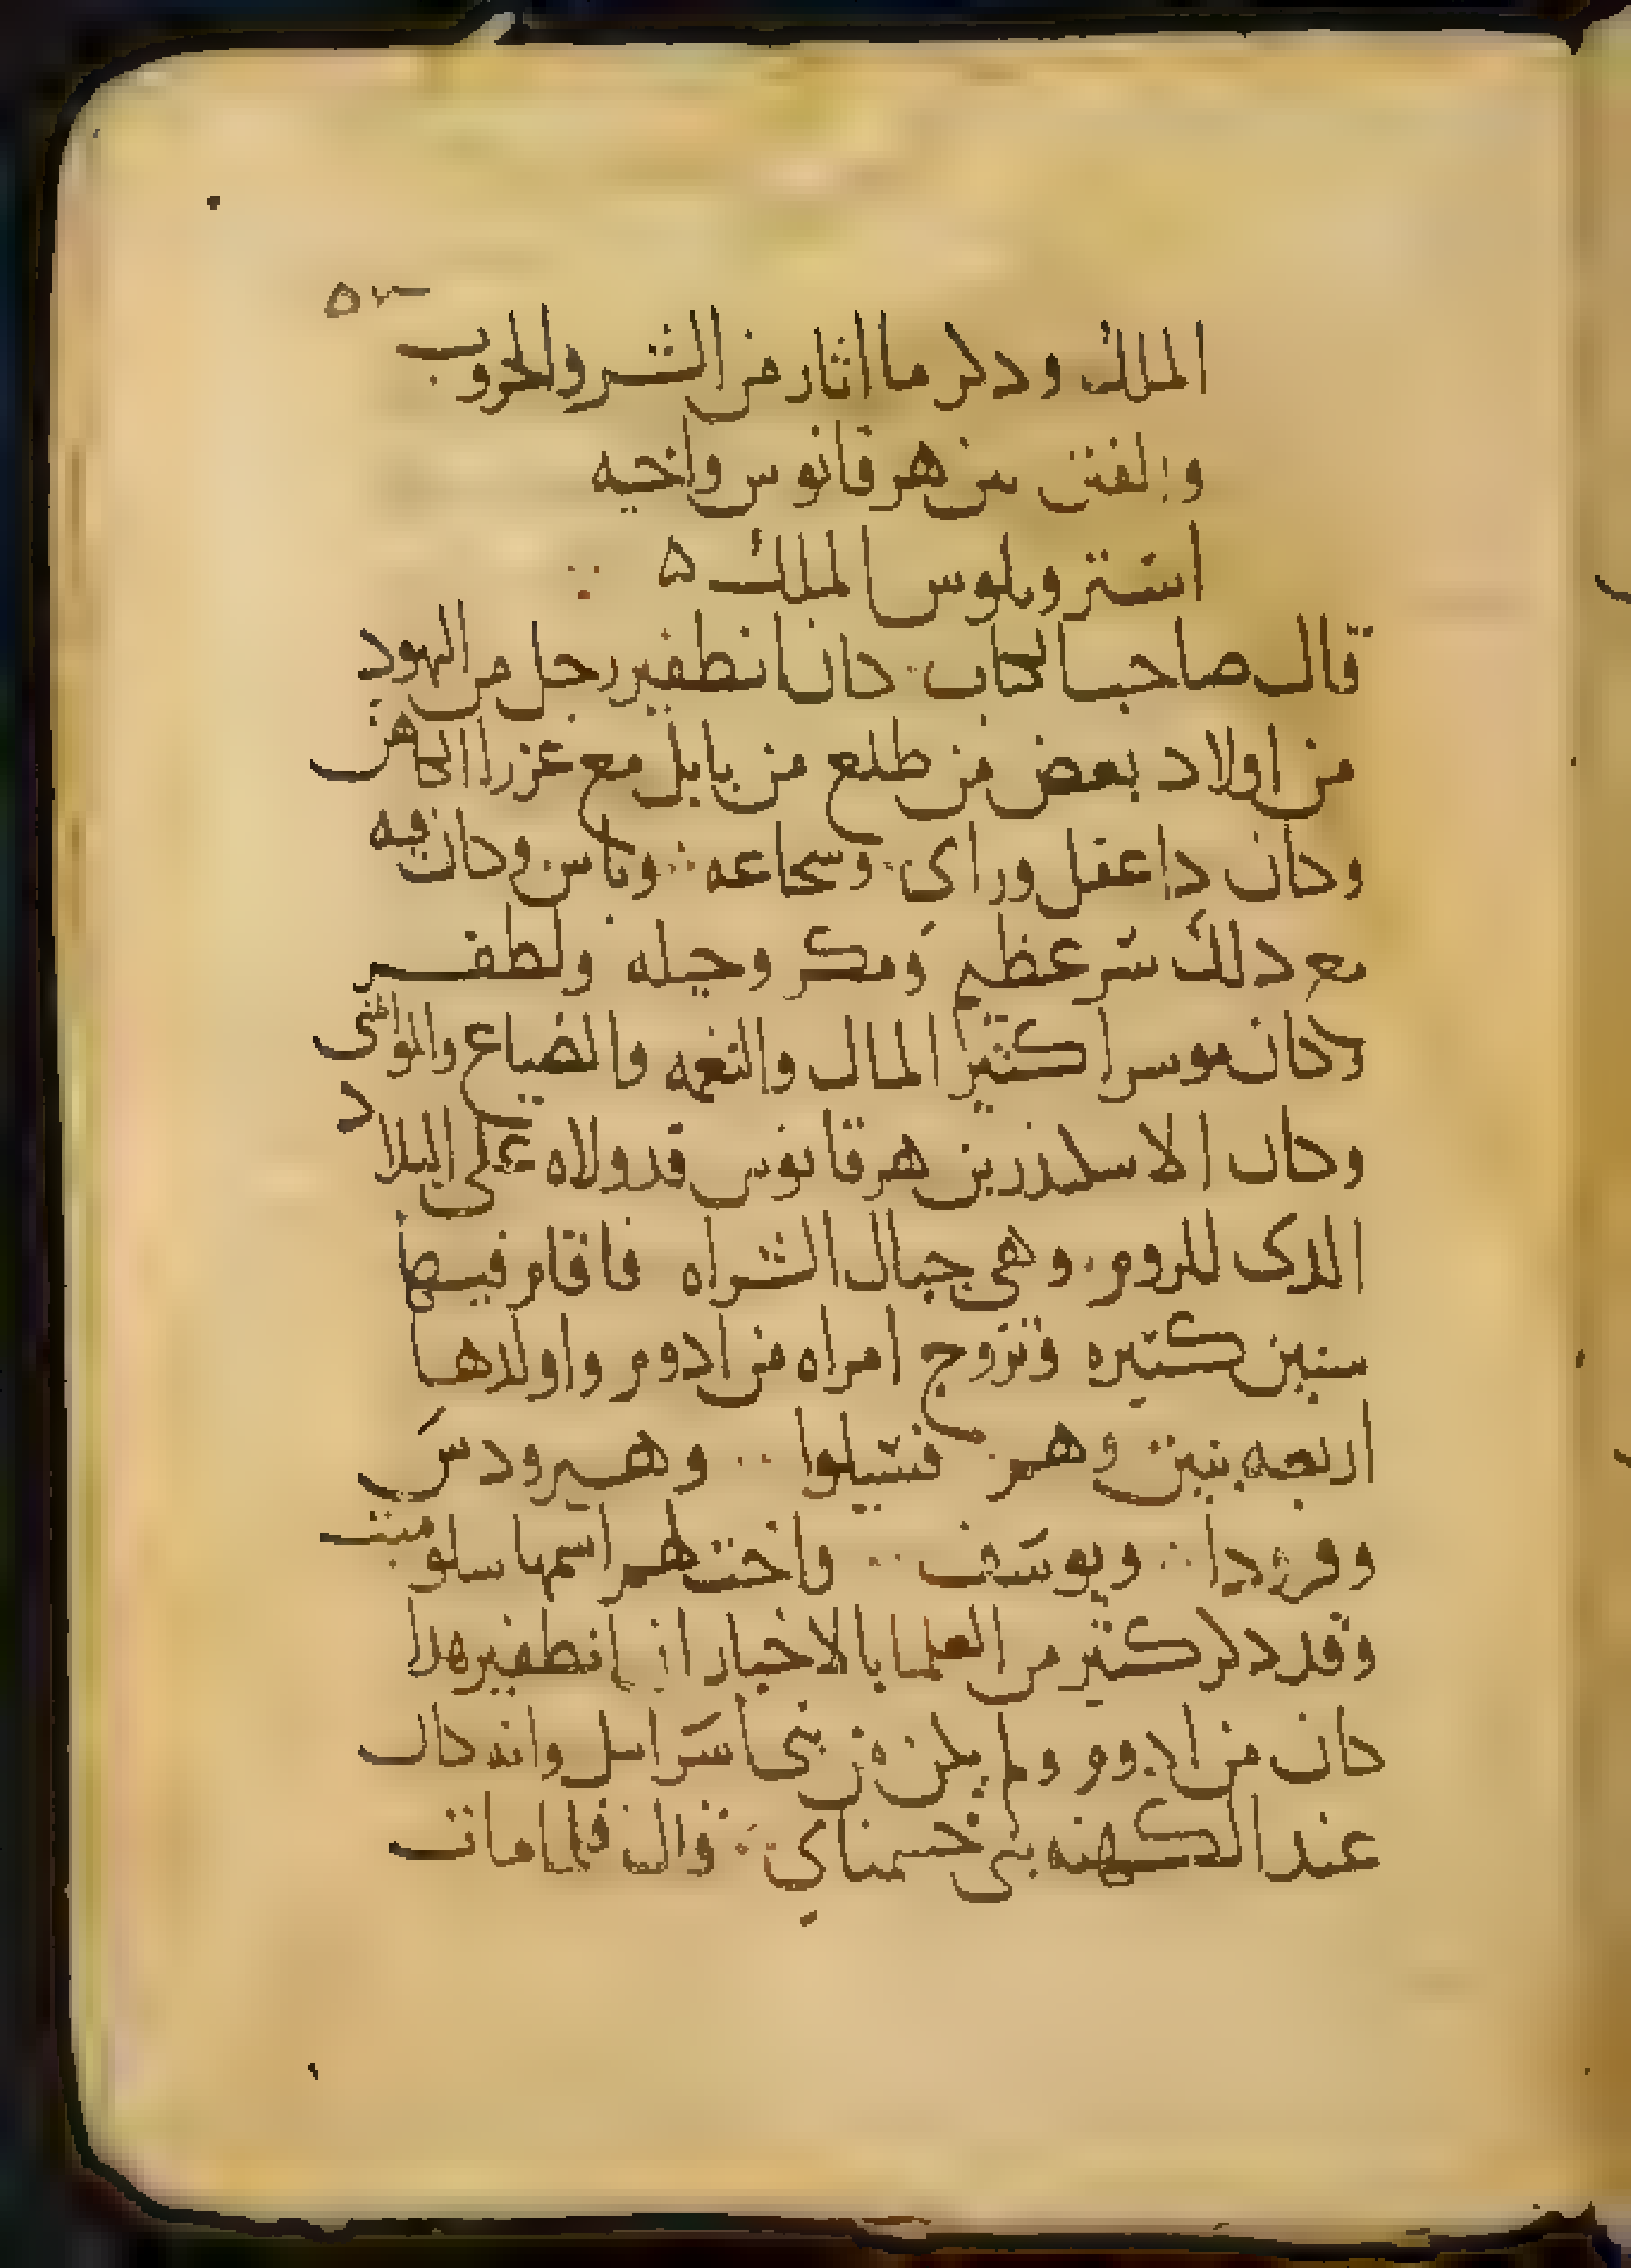 الملك ودكر ما اثار من الشر والحروب
والفتن بين هرقانوس واخيه
استروبلوس الملك ه
قال صاحب الكتاب كان انطفير رجل من اليهود
من اولاد بعض من طلع من بابل مع عزرا الكاهن
وكان دا عقل وراى وسجاعه وباس وكان فيه
مع دلك شر عظيم ومكر وحيله ولطف
وكان موسرا كثير المال والنعمه والضياع والمواشى
وكان الاسكندر بن هرقانوس قد ولاه على البلاد
الدى للروم وهى جبال الشراه فاقام فيها
سنين كتيره وتزوج امراه من ادوم واولدها
اربعه بنين وهم فسيلوا وهيرودس
وفرودا ويوسف واختهم اسمها سلومبت
وقد دكر كتير من العلما بالاخبار ان انطفير هدا
كان من ادوم ولم يكن من بنى اسراىيل وانه كان
عند الكهنه بنى خسمناي قال فلما مات